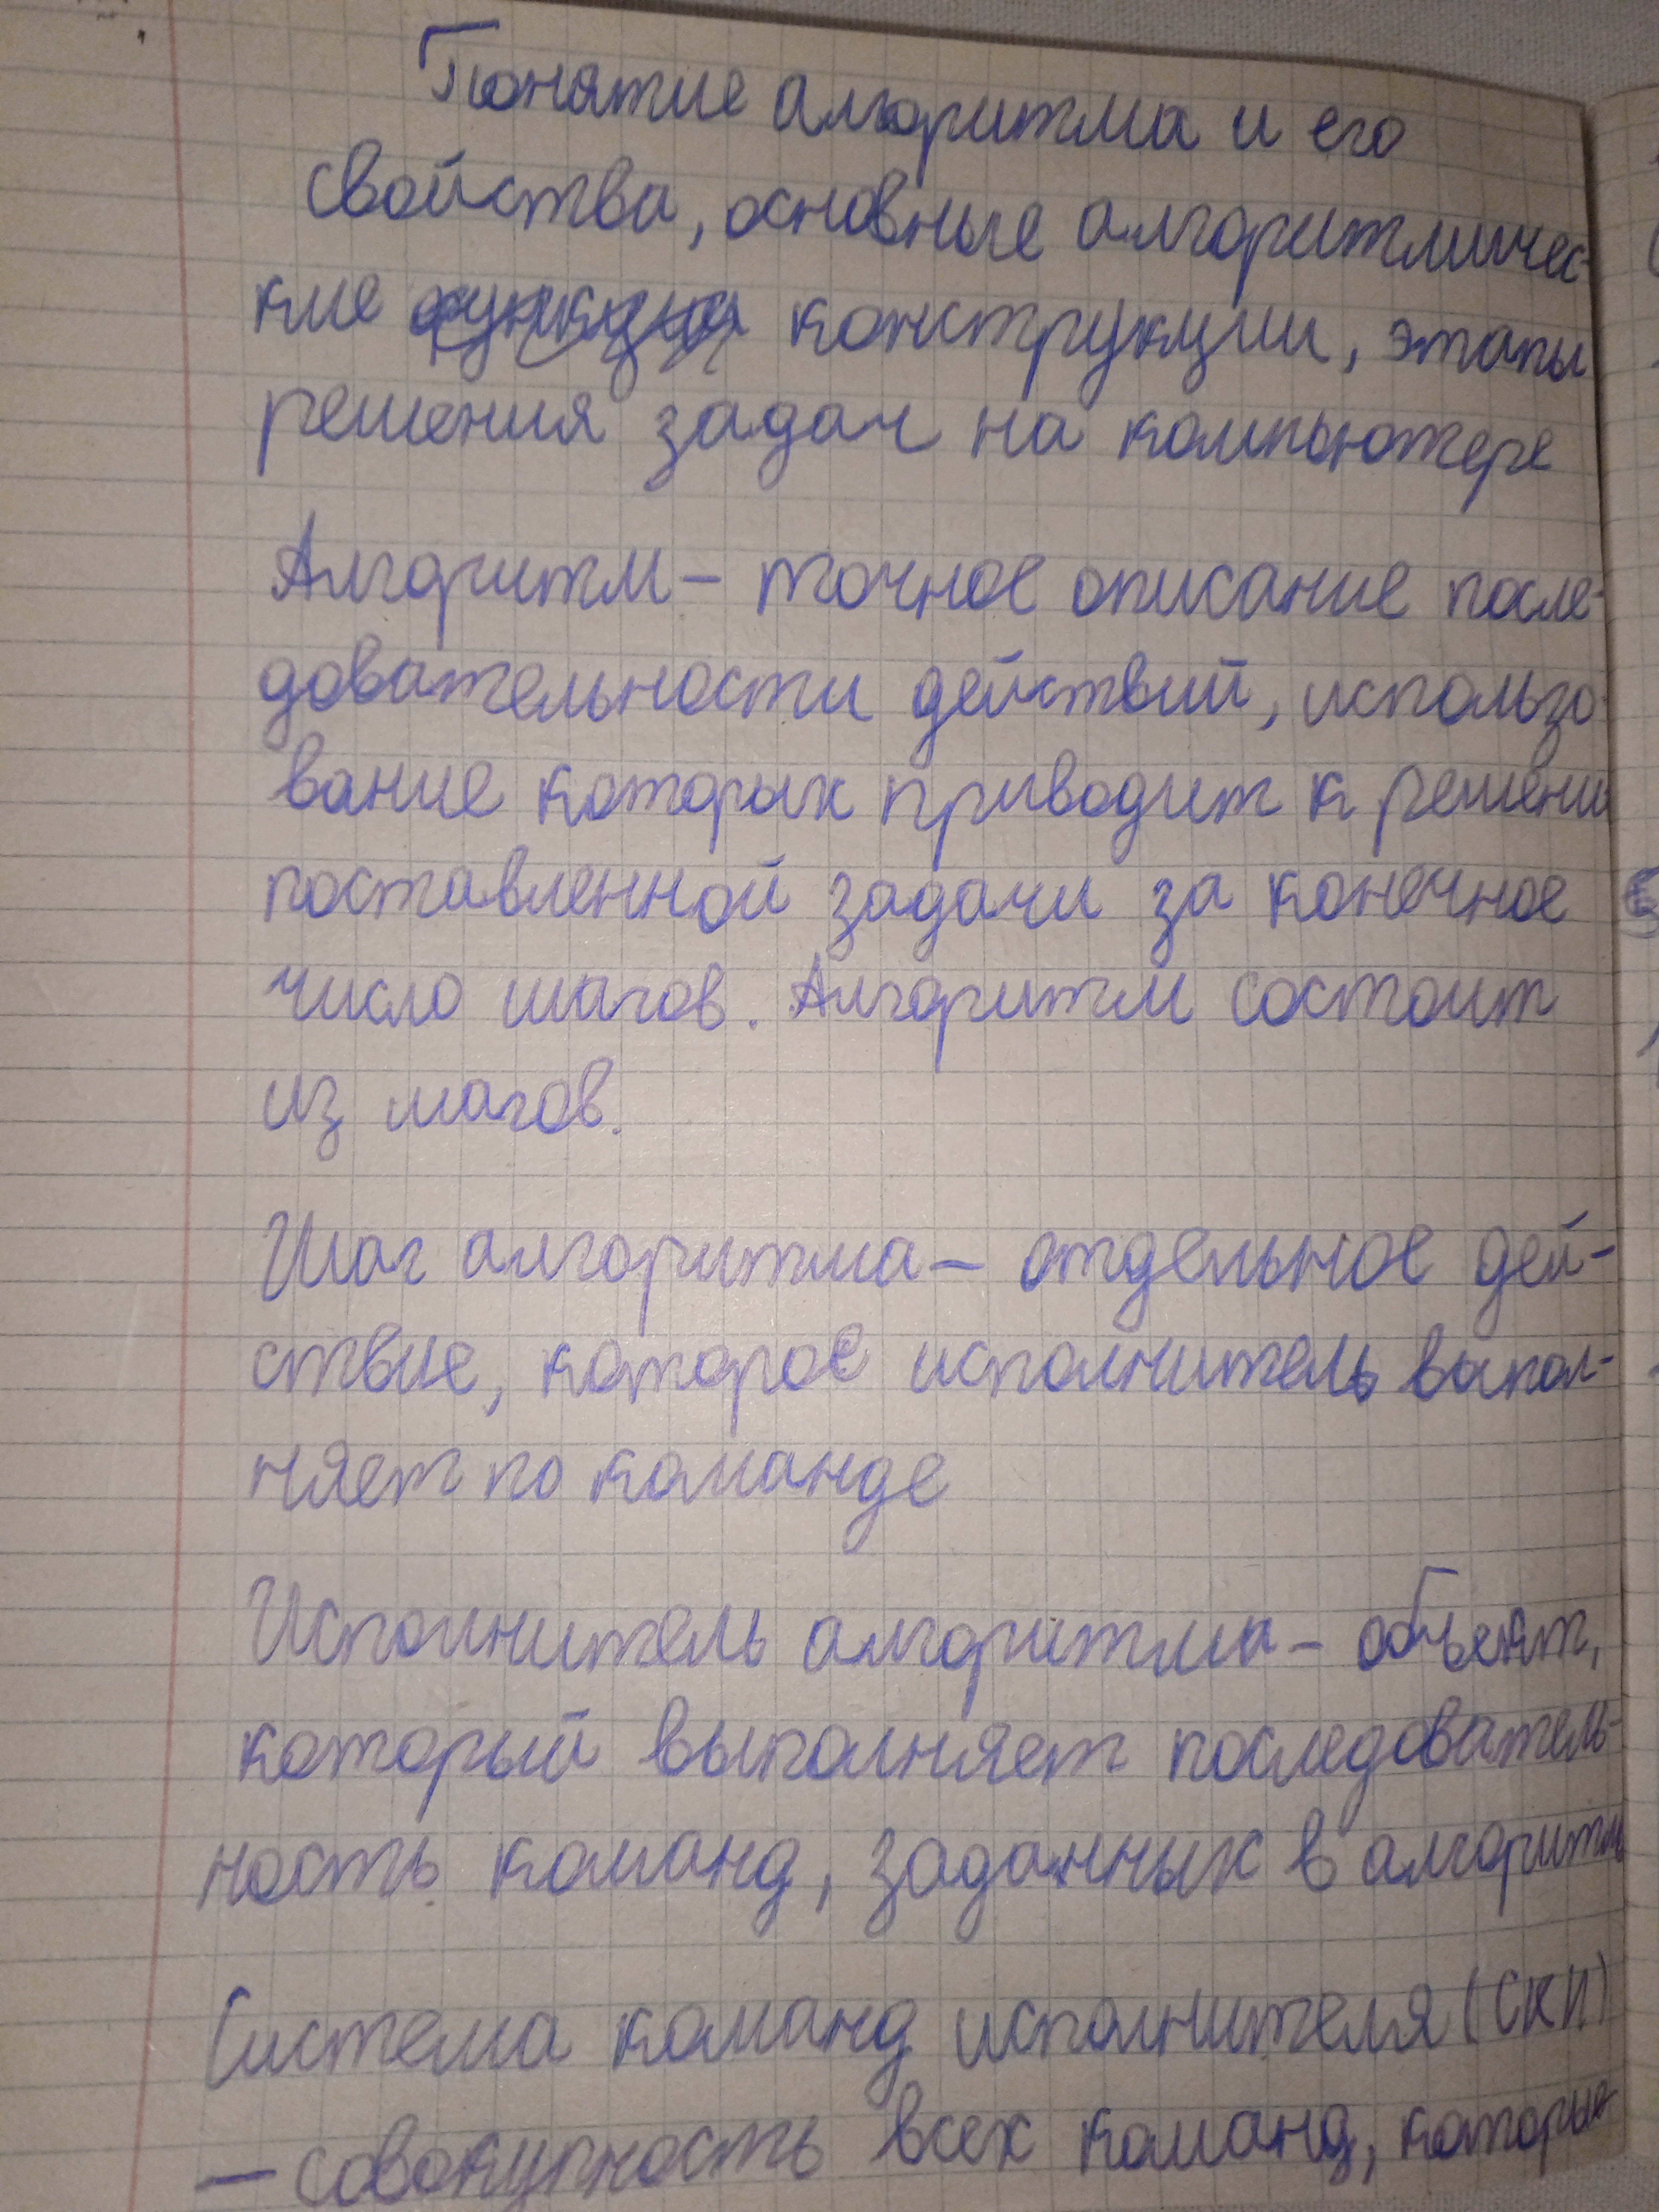 Понятие алгоритма и его
свойства, основные алгоритмичес-
кие конструкции, этапы
решения задач на компьютере
Алгоритм – точное описание после-
довательности действий, использо
вание которых приводит к решени
поставленной задачи за конечное
число шагов. Алгоритм состоит
из шагов.
Шаг алгоритма – отдельное дей-
ствие, которое исполнитель выпол-
няет по команде
Исполнитель алгоритма – объект,
который выполняет последователь-
ность команд, заданных в алгоритм
Система команд исполнителя (СКИ)
– совокупность всех команд, которые